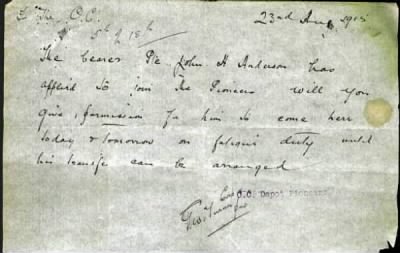 To The O.C.
5th of 18th
23rd Aug 1915
The bearer Pte John H Anderson has
applied to join the Pioneers will you
give permission for him to come here
today & tomorrow on fatigue duty until
his transfer can be arranged
Capt
O.C. Depot Pioneers